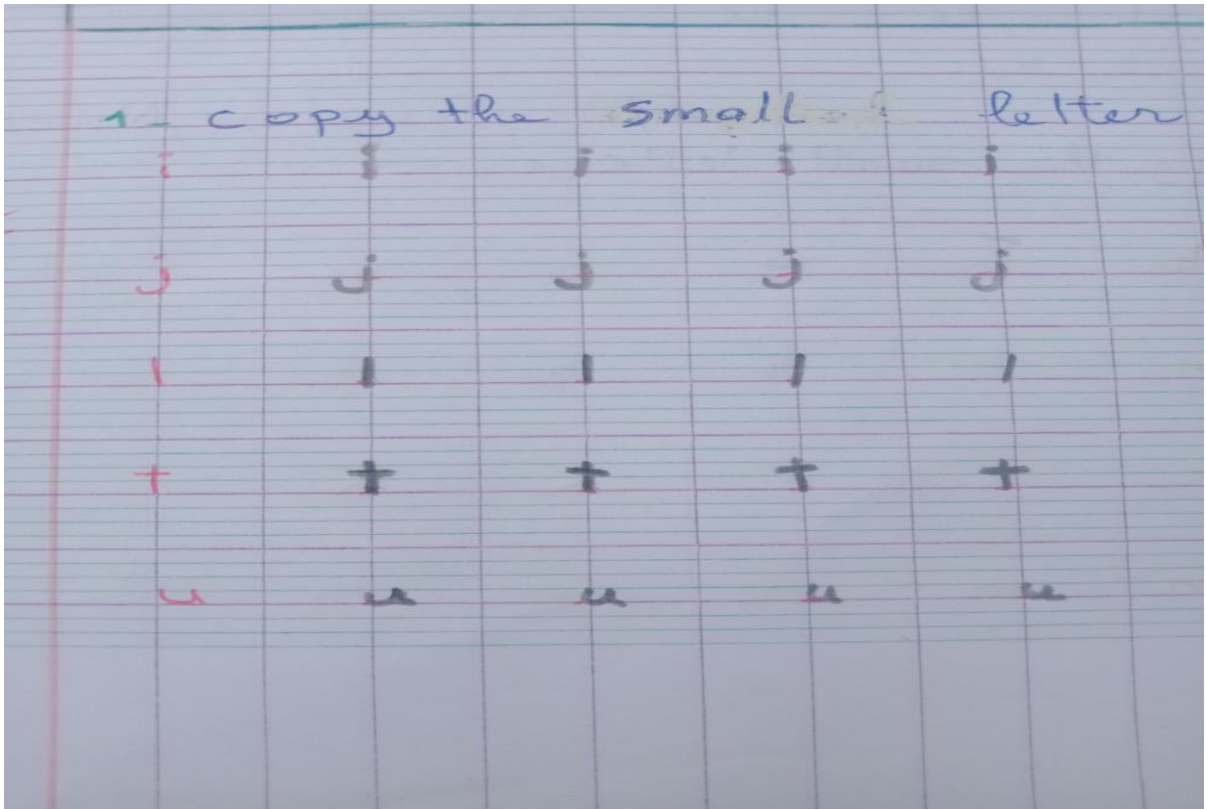 1- copy the small letter
i i i i i
j j j j j
l l l l l
t t t t t
u u u u u